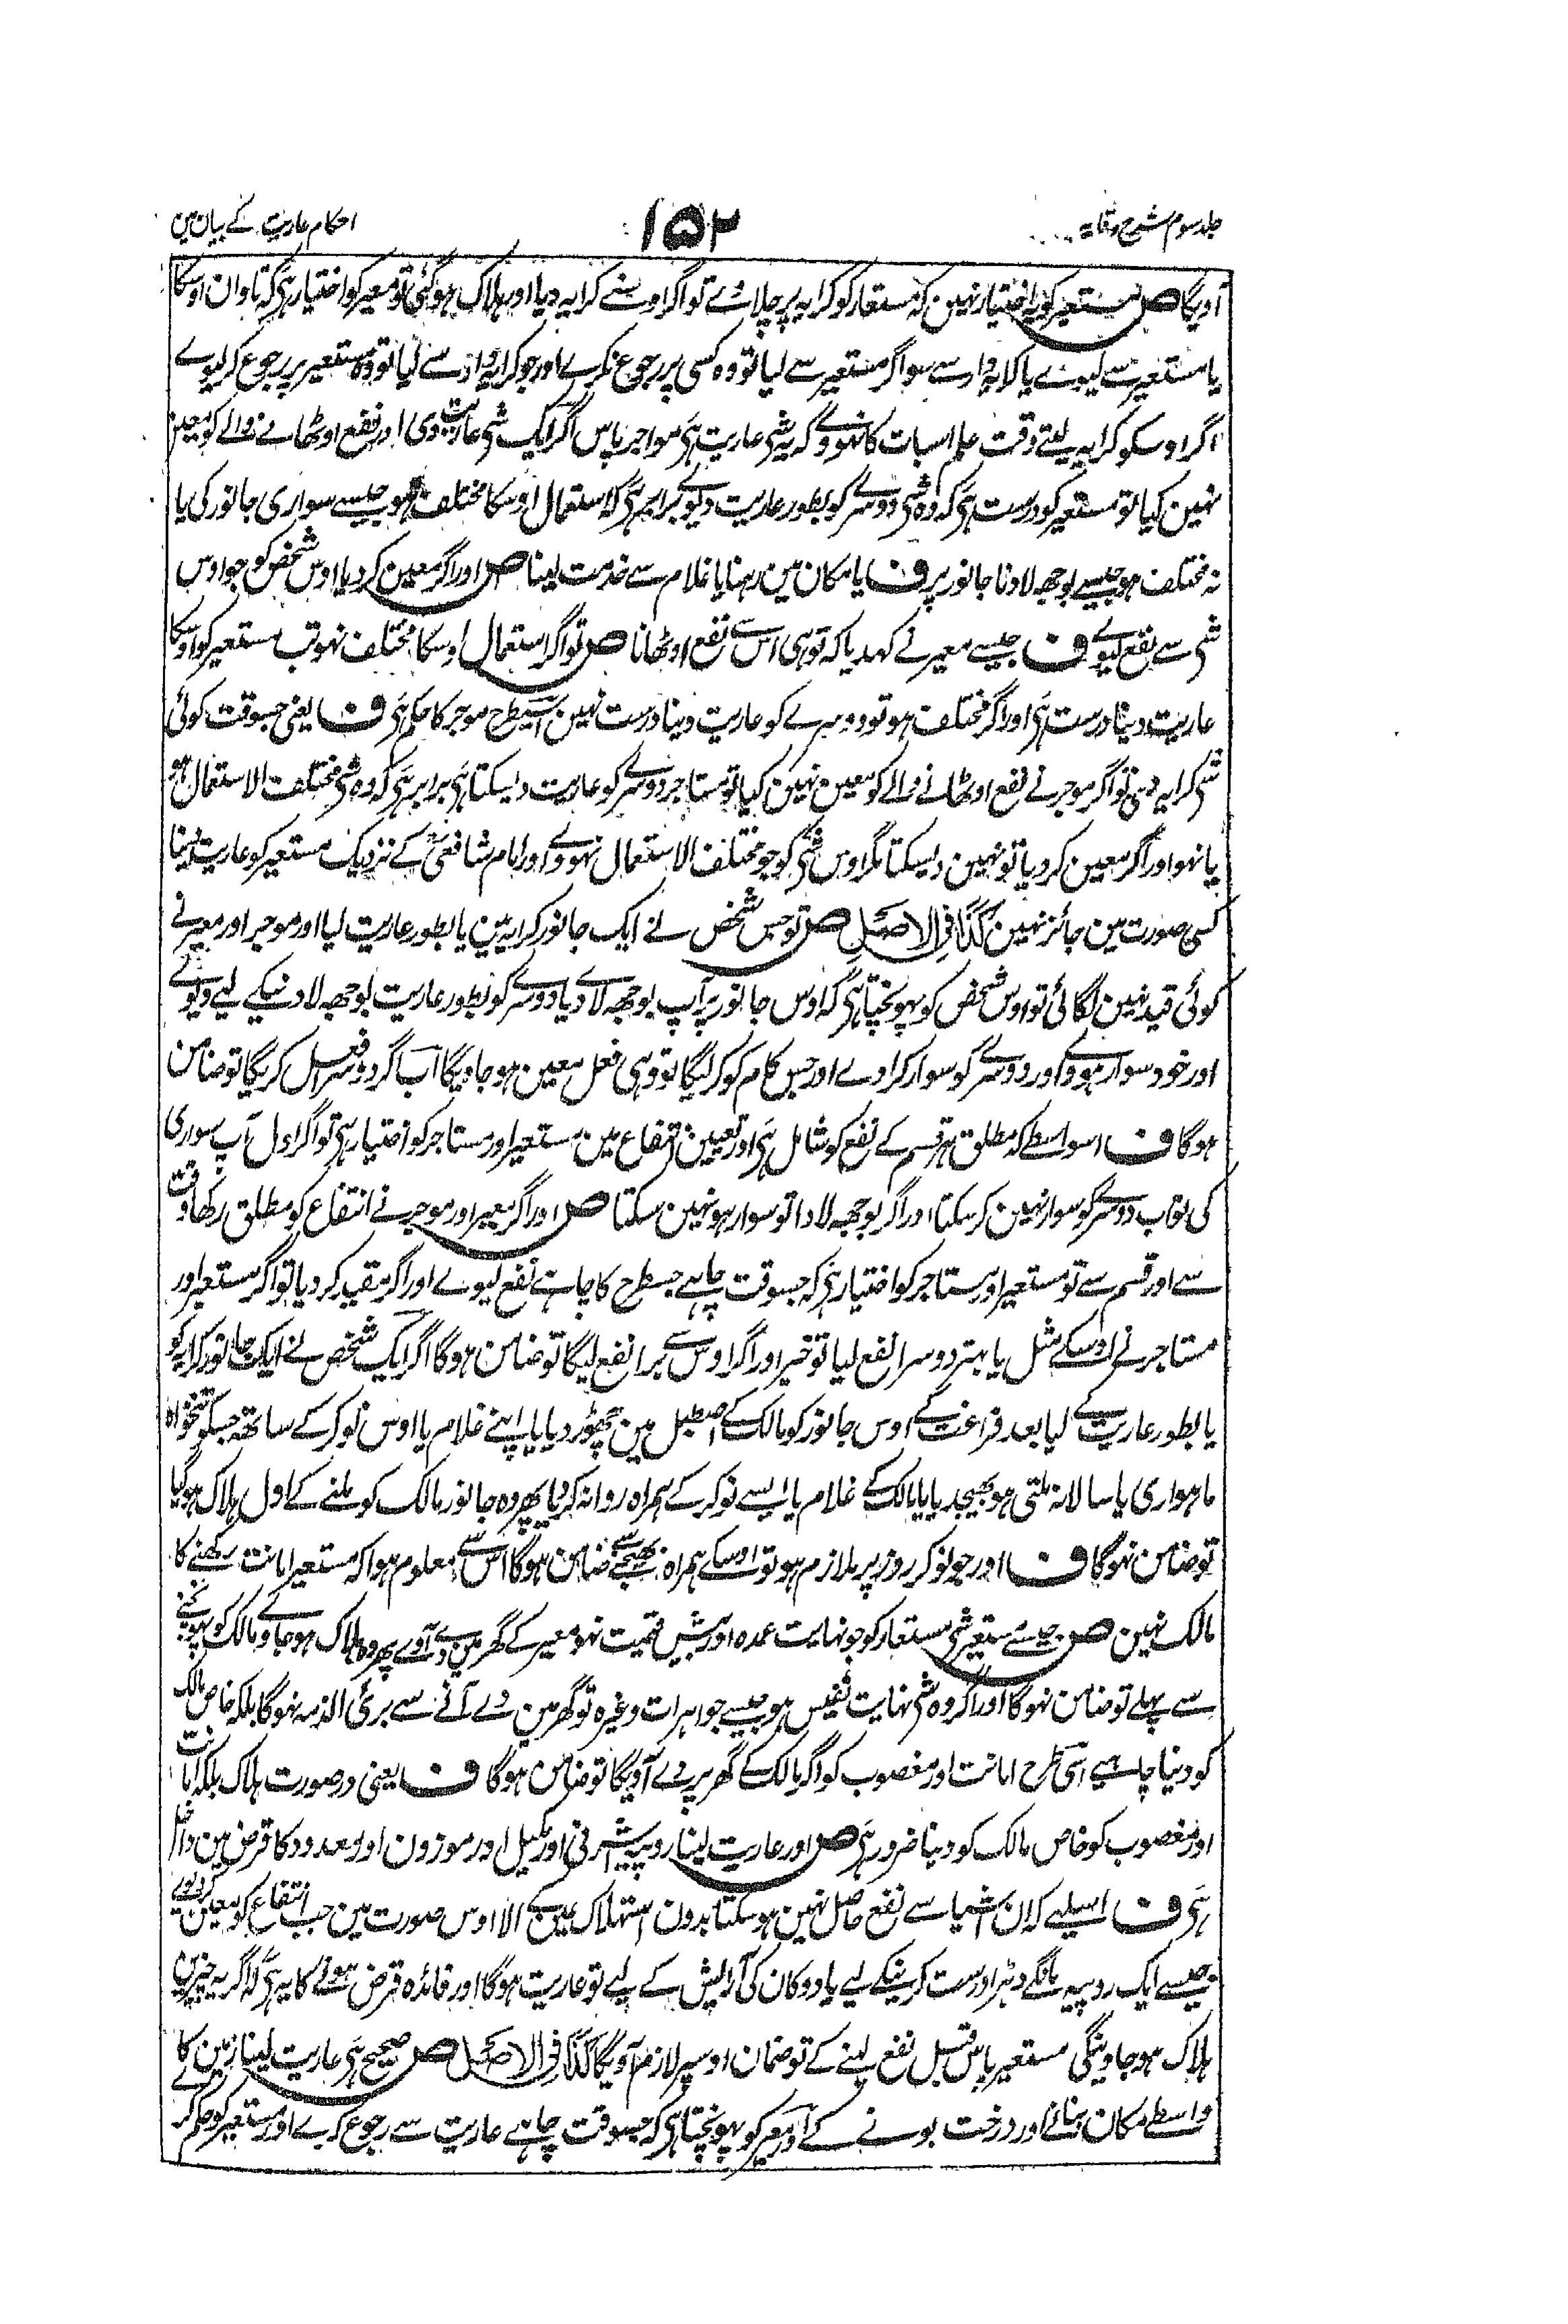 جلد سوم شرح وقایہ
۱۵۲
احکام عاریت کے بیان مین
آویگا ص مستعیر کو یہ اختیار نہین کہ مستعار کو کرایہ پر چلاوے تو اگر اوسنے کرایہ دیا اور ہلاک ہو گئی تو معیر کو اختیار ہی کہ تاوان اوسکا
یا مستعیر سے لیوے یا کرایہ دار سے سو اگر مستعیر سے لیا تو وہ کسی پر رجوع نکرے اور جو کرایہ دار سے لیا تو وہ مستعیر پر رجوع کر لیوے
اگر اوسکو کرایہ لیتے وقت علم اسبات کا نہووے کہ یہ شی عاریت ہی مواجر پاس اگر ایک شی عاریت دی اور نفع اوٹھانے والے کو معین
نہین کیا تو مستعیر کو درست ہی کہ وہ شی دوسرے کو بطور عاریت دیوے برابر ہی کہ استعمال اوسکا مختلف ہو جیسے سواری جانور کی یا
نہ مختلف ہو جیسے بوجھہ لادنا جانور پر ف یا مکان مین رہنا یا غلام سے خدمت لینا ص اور اگر معین کر دیا اوس شخص کو جو اوس
شی سے نفع لیوے ف جیسے معیر نے کہدیا کہ تو ہی اس سے نفع اوٹھانا ص تو اگر استعمال اوسکا مختلف نہو تب مستعیر کو اوسکا
عاریت دینا درست ہی اور اگر مختلف ہو تو دوسرے کو عاریت دینا درست نہین اسیطرح موجر کا حکم ہی ف یعنی جسوقت کوئی
شی کرایہ دی تو اگر موجر نے نفع اوٹھانے والے کو معین نہین کیا تو مستاجر دوسرے کو عاریت دیسکتا ہی برابر ہی کہ وہ شی مختلف الاستعمال ہو
یا نہو اور اگر معین کر دیا تو نہین دیسکتا مگر اوس شی کو جو مختلف الاستعمال نہووے اور امام شافعیؒ کے نزدیک مستعیر کو عاریت دینا
کسی صورت مین جائز نہین کَذَا فِی الاَصْلِ ص تو جس شخص نے ایک جانور کرایہ مین یا بطور عاریت لیا اور موجر اور معیر نے
کوئی قید نہین لگائی تو اوس شخص کو پہونچتا ہی کہ اوس جانور پر آپ بوجھہ لادے یا دوسرے کو بطور عاریت بوجھہ لادنیکے لیے دیوے
اور خود سوار ہووے اور دوسرے کو سوار کرادے اور جس کام کو کر لیگا تو وہی فعل معین ہو جاویگا اب اگر دوسرا فعل کریگا تو ضامن
ہوگا ف اسواسطے کہ مطلق ہر قسم کے نفع کو شامل ہی اور تعیین انتفاع مین مستعیر اور مستاجر کو اختیار ہی تو اگر اول آپ سواری
کی تو اب دوسرے کو سوار نہین کر سکتا اور اگر بوجھہ لادا تو سوار ہو نہین سکتا ص اور اگر معیر اور موجر نے انتفاع کو مطلق رکھا وقت
سے اور قسم سے تو مستعیر اور مستاجر کو اختیار ہی کہ جسوقت چاہے جسطرح کا چاہے نفع لیوے اور اگر مقید کر دیا تو اگر مستعیر اور
مستاجر نے اوسکے مثل یا بہتر دوسرا نفع لیا تو خیر اور اگر اوس سے برا نفع لیگا تو ضامن ہوگا اگر ایک شخص نے ایک جانور کرایہ کو
یا بطور عاریت کے لیا بعد فراغت کے اوس جانور کو مالک کے اصطبل مین چھوڑ دیا یا اپنے غلام یا اوس نوکر کے ساتھہ جسکو تنخواہ
ماہواری یا سالانہ ملتی ہو بھیجدیا یا مالک کے غلام یا ایسے نوکر کے ہمراہ روانہ کر دیا پھر وہ جانور مالک کو ملنے کے اول ہلاک ہو گیا
تو ضامن نہوگا ف اور جو نوکر روز پر ملازم ہو تو اوسکے ہمراہ بھیجنے سے ضامن ہوگا اس سے معلوم ہوا کہ مستعیر امانت رکھنے کا
مالک نہین ص جیسے مستعیر شی مستعار کو جو نہایت عمدہ اور بیش قیمت نہو معیر کے گھر مین دے آوے پھر وہ ہلاک ہو جاوے مالک کو پہونچنے
سے پہلے تو ضامن نہوگا اور اگر وہ شی نہایت نفیس ہو جیسے جواہرات وغیرہ تو گھر مین دے آنے سے بری الذمہ نہوگا بلکہ خاص مالک
کو دینا چاہیے اسی طرح امانت اور مغصوب کو اگر مالک کے گھر پر دے آویگا تو ضامن ہوگا ف یعنی درصورت ہلاک بلکہ امانت
اور مغصوب کو خاص مالک کو دینا ضرور ہی ص اور عاریت لینا روپیہ اشرفی اور مکیل اور موزون اور معدود کا قرض مین داخل
ہی ف اسلیے کہ ان اشیا سے نفع حاصل نہین ہو سکتا بدون استہلاک عین کے الا اوس صورت مین جب انتفاع کو معین کر دیوے
جیسے ایک روپیہ مانگے دہڑا درست کرنیکے لیے یا دوکان کی آرایش کے لیے تو عاریت ہوگا اور فائدہ قرض ہونے کا یہ ہی کہ اگر یہ چیزین
ہلاک ہو جاوینگی مستعیر پاس قبل نفع لینے کے تو ضمان اوسپر لازم آویگا کَذَا فِی الاَصْلِ ص صحیح ہی عاریت لینا زمین کا
واسطے مکان بنانے اور درخت بونے کے اور معیر کو پہونچتا ہی کہ جسوقت چاہے عاریت سے رجوع کرے اور مستعیر کو حکم کرے